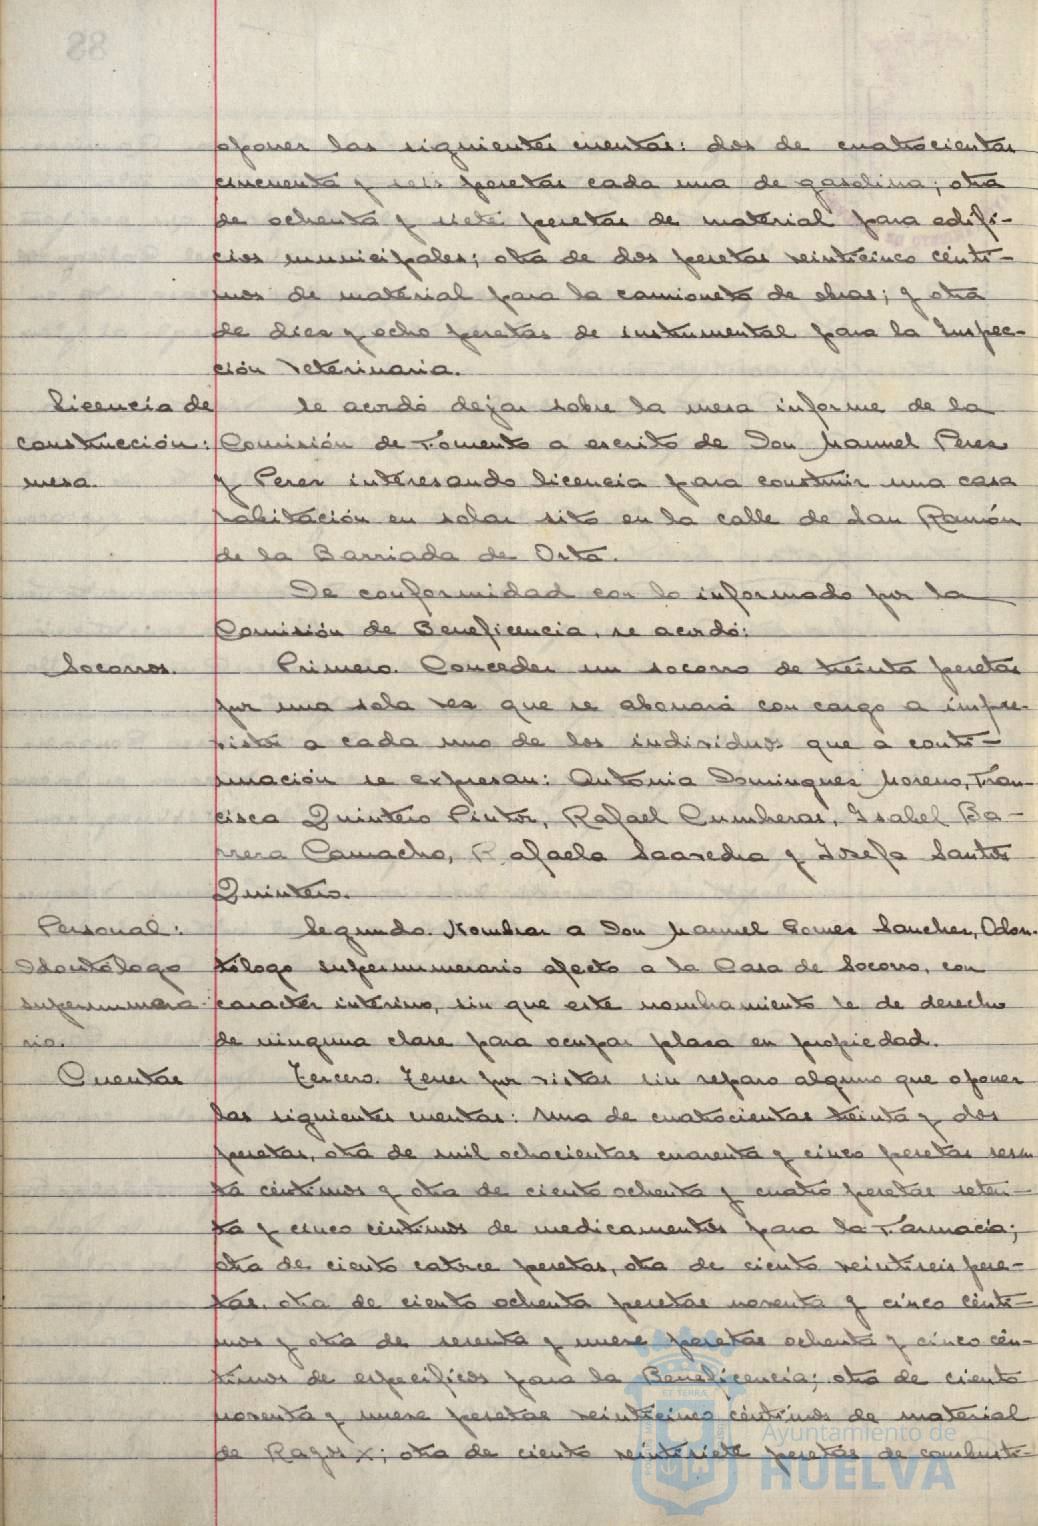 88
oponer las siguientes cuentas: dos de cuatrocientas
cincuenta y seis pesetas cada una de gasolina; otra
de ochenta y siete pesetas de material para edifi-
cios municipales; otra de dos pesetas veinticinco cénti-
mos de material para la camioneta de obras; y otra
de diez y ocho pesetas de instrumental para la Inspec-
ción Veterinaria.
Licencia de Se acordó dejar sobre la mesa informe de la
construcción: Comisión de Fomento a escrito de Don Manuel Perez
mesa. y Perez interesando licencia para construir una casa
habitación en solar sito en la calle de San Ramón
de la Barriada de Orta.
De conformidad con lo informado por la
Comisión de Beneficencia, se acordó:
Socorros. Primero. Conceder un socorro de treinta pesetas
por una sola vez que se abonará con cargo a impre-
vistos a cada uno de los individuos que a conti-
nuación se expresan: Antonia Dominguez Moreno, Fran-
cisca Quintero Pintor, Rafael Cumbreras, Isabel Ba-
rrera Camacho, Rafaela Saavedra y Josefa Santos
Quintero.
Personal: Segundo. Nombrar a Don Manuel Gomez Sanchez, Odon-
Odontólogo tólogo supernumerario afecto a la Casa de Socorro, con
supernumera- caracter interino, sin que este nombramiento le de derecho
rio. de ninguna clase para ocupar plaza en propiedad.
Cuentas Tercero. Tener por vistas sin reparo alguno que oponer
las siguientes cuentas: una de cuatrocientas treinta y dos
pesetas, otra de mil ochocientas cuarenta y cinco pesetas sesen
ta céntimos y otra de ciento ochenta y cuatro pesetas seten-
ta y cinco céntimos de medicamentos para la Farmacia;
otra de ciento catorce pesetas, otra de ciento veintiseis pese-
tas, otra de ciento ochenta pesetas noventa y cinco cénti-
mos y otra de sesenta y nueve pesetas ochenta y cinco cén-
timos de especificos para la Beneficencia; otra de ciento
noventa y nueve pesetas veinticinco céntimos de material
de Rayos X; otra de ciento veintisiete pesetas de combusti-
ET TERRA
Ayuntamiento de
HUELVA